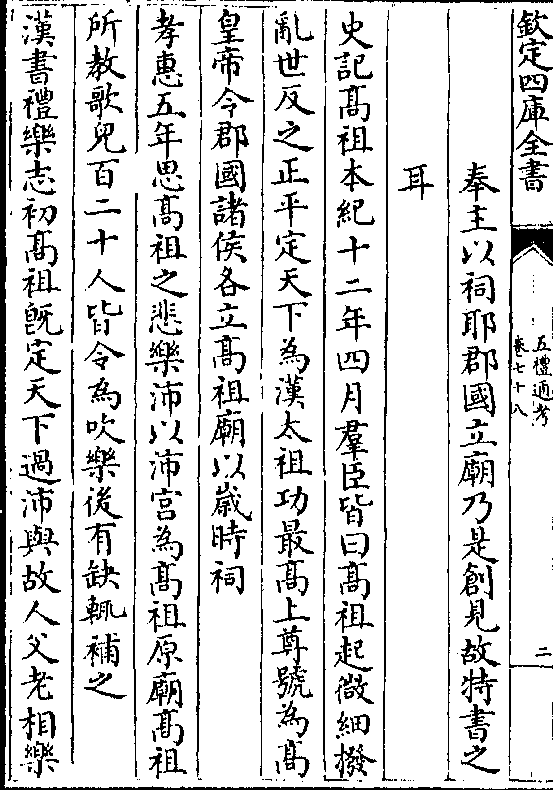 欽定四庫全書
五禮通考
卷七十八
二
奉主以祠耶郡國立廟乃是創見故特書之
耳
史記髙祖本紀十二年四月羣臣皆曰髙祖起微細撥
亂世反之正平定天下為漢太祖功最髙上尊號為髙
皇帝令郡國諸侯各立髙祖廟以嵗時祠
孝惠五年思髙祖之悲樂沛以沛宫為髙祖原廟髙祖
所教歌兒百二十人皆令為吹樂後有缺輒補之
漢書禮樂志初髙祖既定天下過沛與故人父老相樂